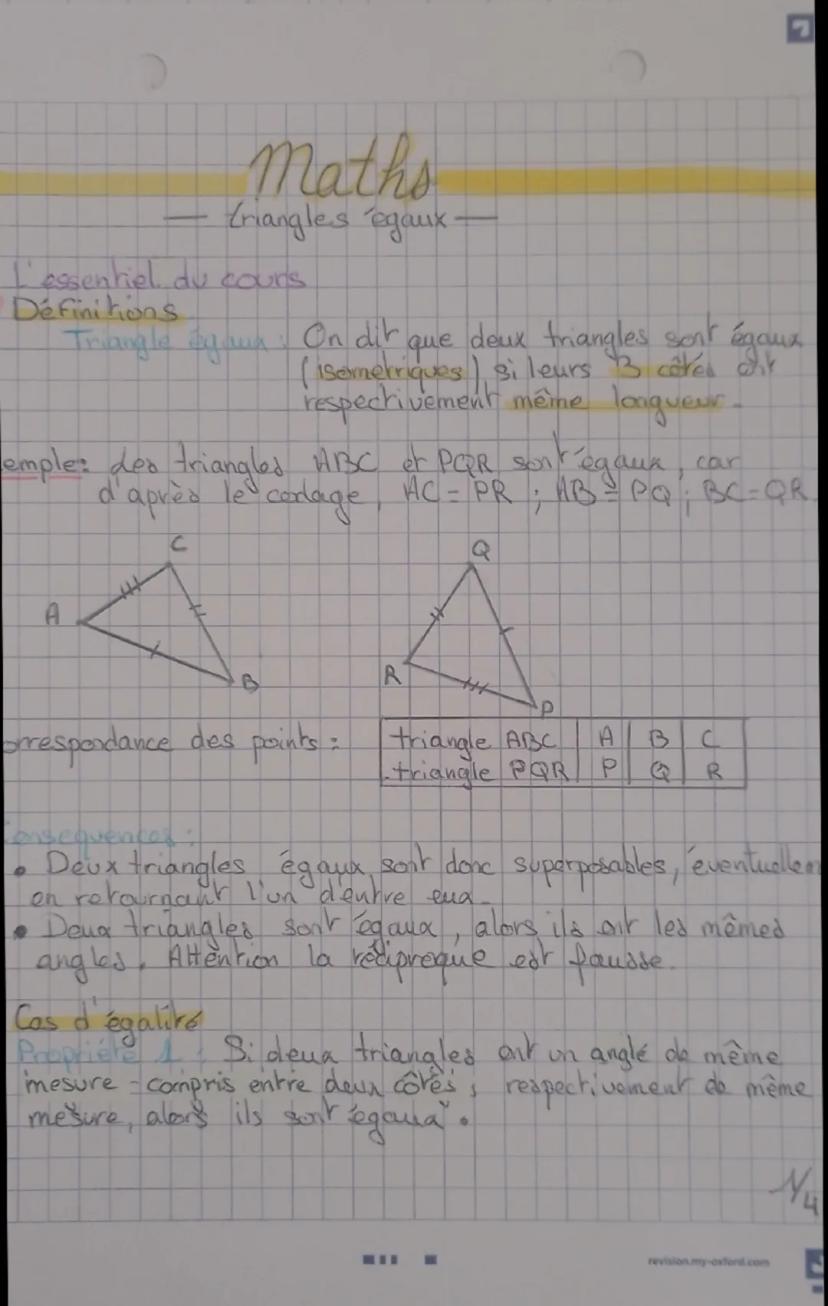 Maths
— triangles égaux —
L'essentiel du cours
Définitions
Triangle égaux : On dit que deux triangles sont égaux
(isometriques) si leurs 3 côtés ont
respectivement même longueur.
emple: des triangles ABC et PQR sont égaux, car
d'après le codage, AC = PR ; AB = PQ ; BC = QR
C
A
B
Q
R
P
orrespondance des points :
triangle ABC | A | B | C
triangle PQR | P | Q | R
onsequences :
• Deux triangles égaux sont donc superposables, éventuellem
en retournant l'un d'entre eux.
• Deux triangles sont égaux, alors ils ont les mêmes
angles. Attention la réciproque est fausse.
Cas d'égalité
Propriété 1 : Si deux triangles ont un angle de même
mesure compris entre deux côtés, respectivement de même
mesure, alors ils sont égaux.
1/4
revision.my-oxford.com